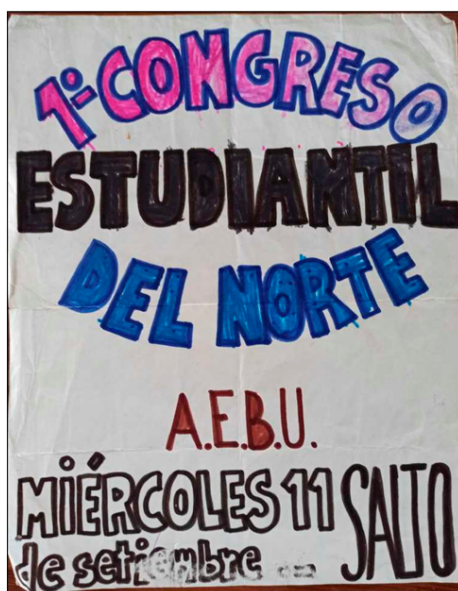 1º CONGRESO
ESTUDIANTIL
DEL NORTE
A.E.B.U.
MIÉRCOLES 11
de setiembre
SALTO